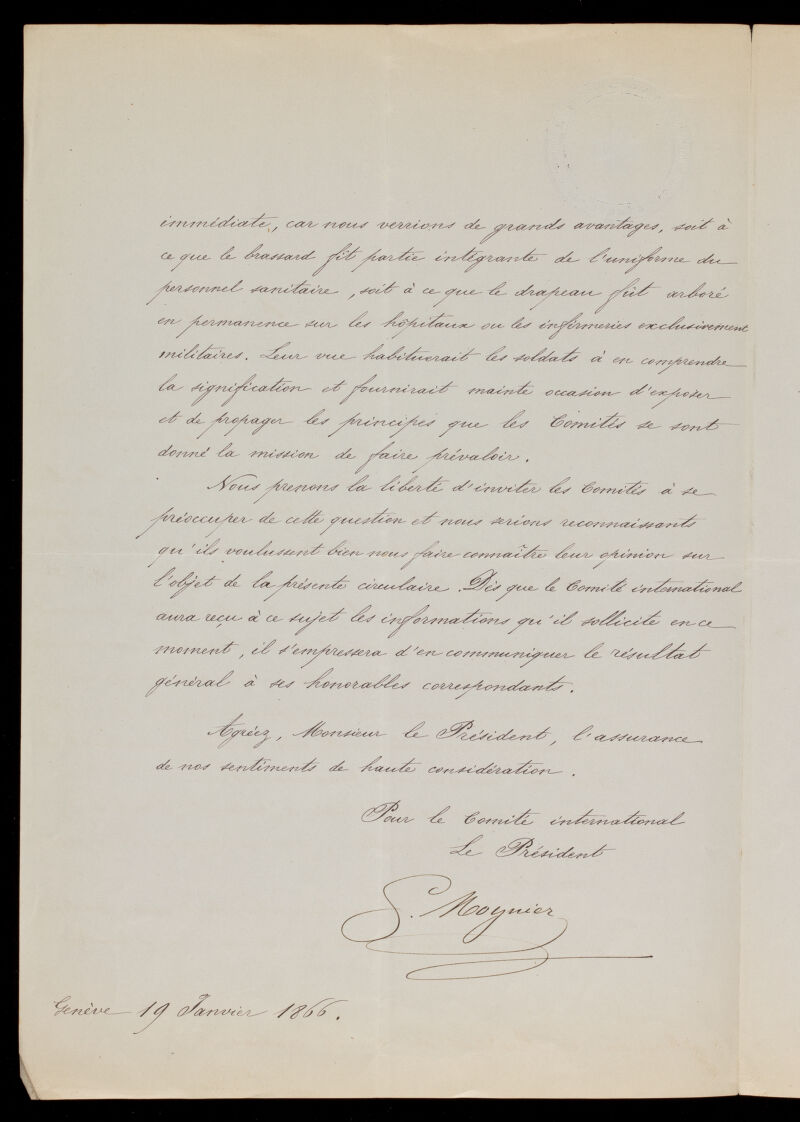 immédiate, car nous verrions de grands avantages, soit à
ce que le brassard fît partie intégrante de l'uniforme du
personnel sanitaire, soit à ce que le drapeau fût arboré
en permanence sur les hôpitaux ou les infirmeries exclusivement
militaires. Leur vue habituerait les soldats à en comprendre
la signification et fournirait mainte occasion d'exposer
et de propager les principes que les Comités se sont
donné la mission de faire prévaloir.
Nous prenons la liberté d'inviter les Comités à se
préoccuper de cette question et nous serions reconnaissants
qu'ils voulussent bien nous faire connaître leur opinion sur
l'objet de la présente circulaire. Dès que le Comité international
aura reçu à ce sujet les informations qu'il sollicite en ce
moment, il s'empressera d'en communiquer le résultat
général à ses honorables correspondants.
Agréez, Monsieur le Président, l'assurance
de nos sentiments de haute considération.
Pour le Comité international
Le Président
G. Moynier
Genève 19 Janvier 1866.